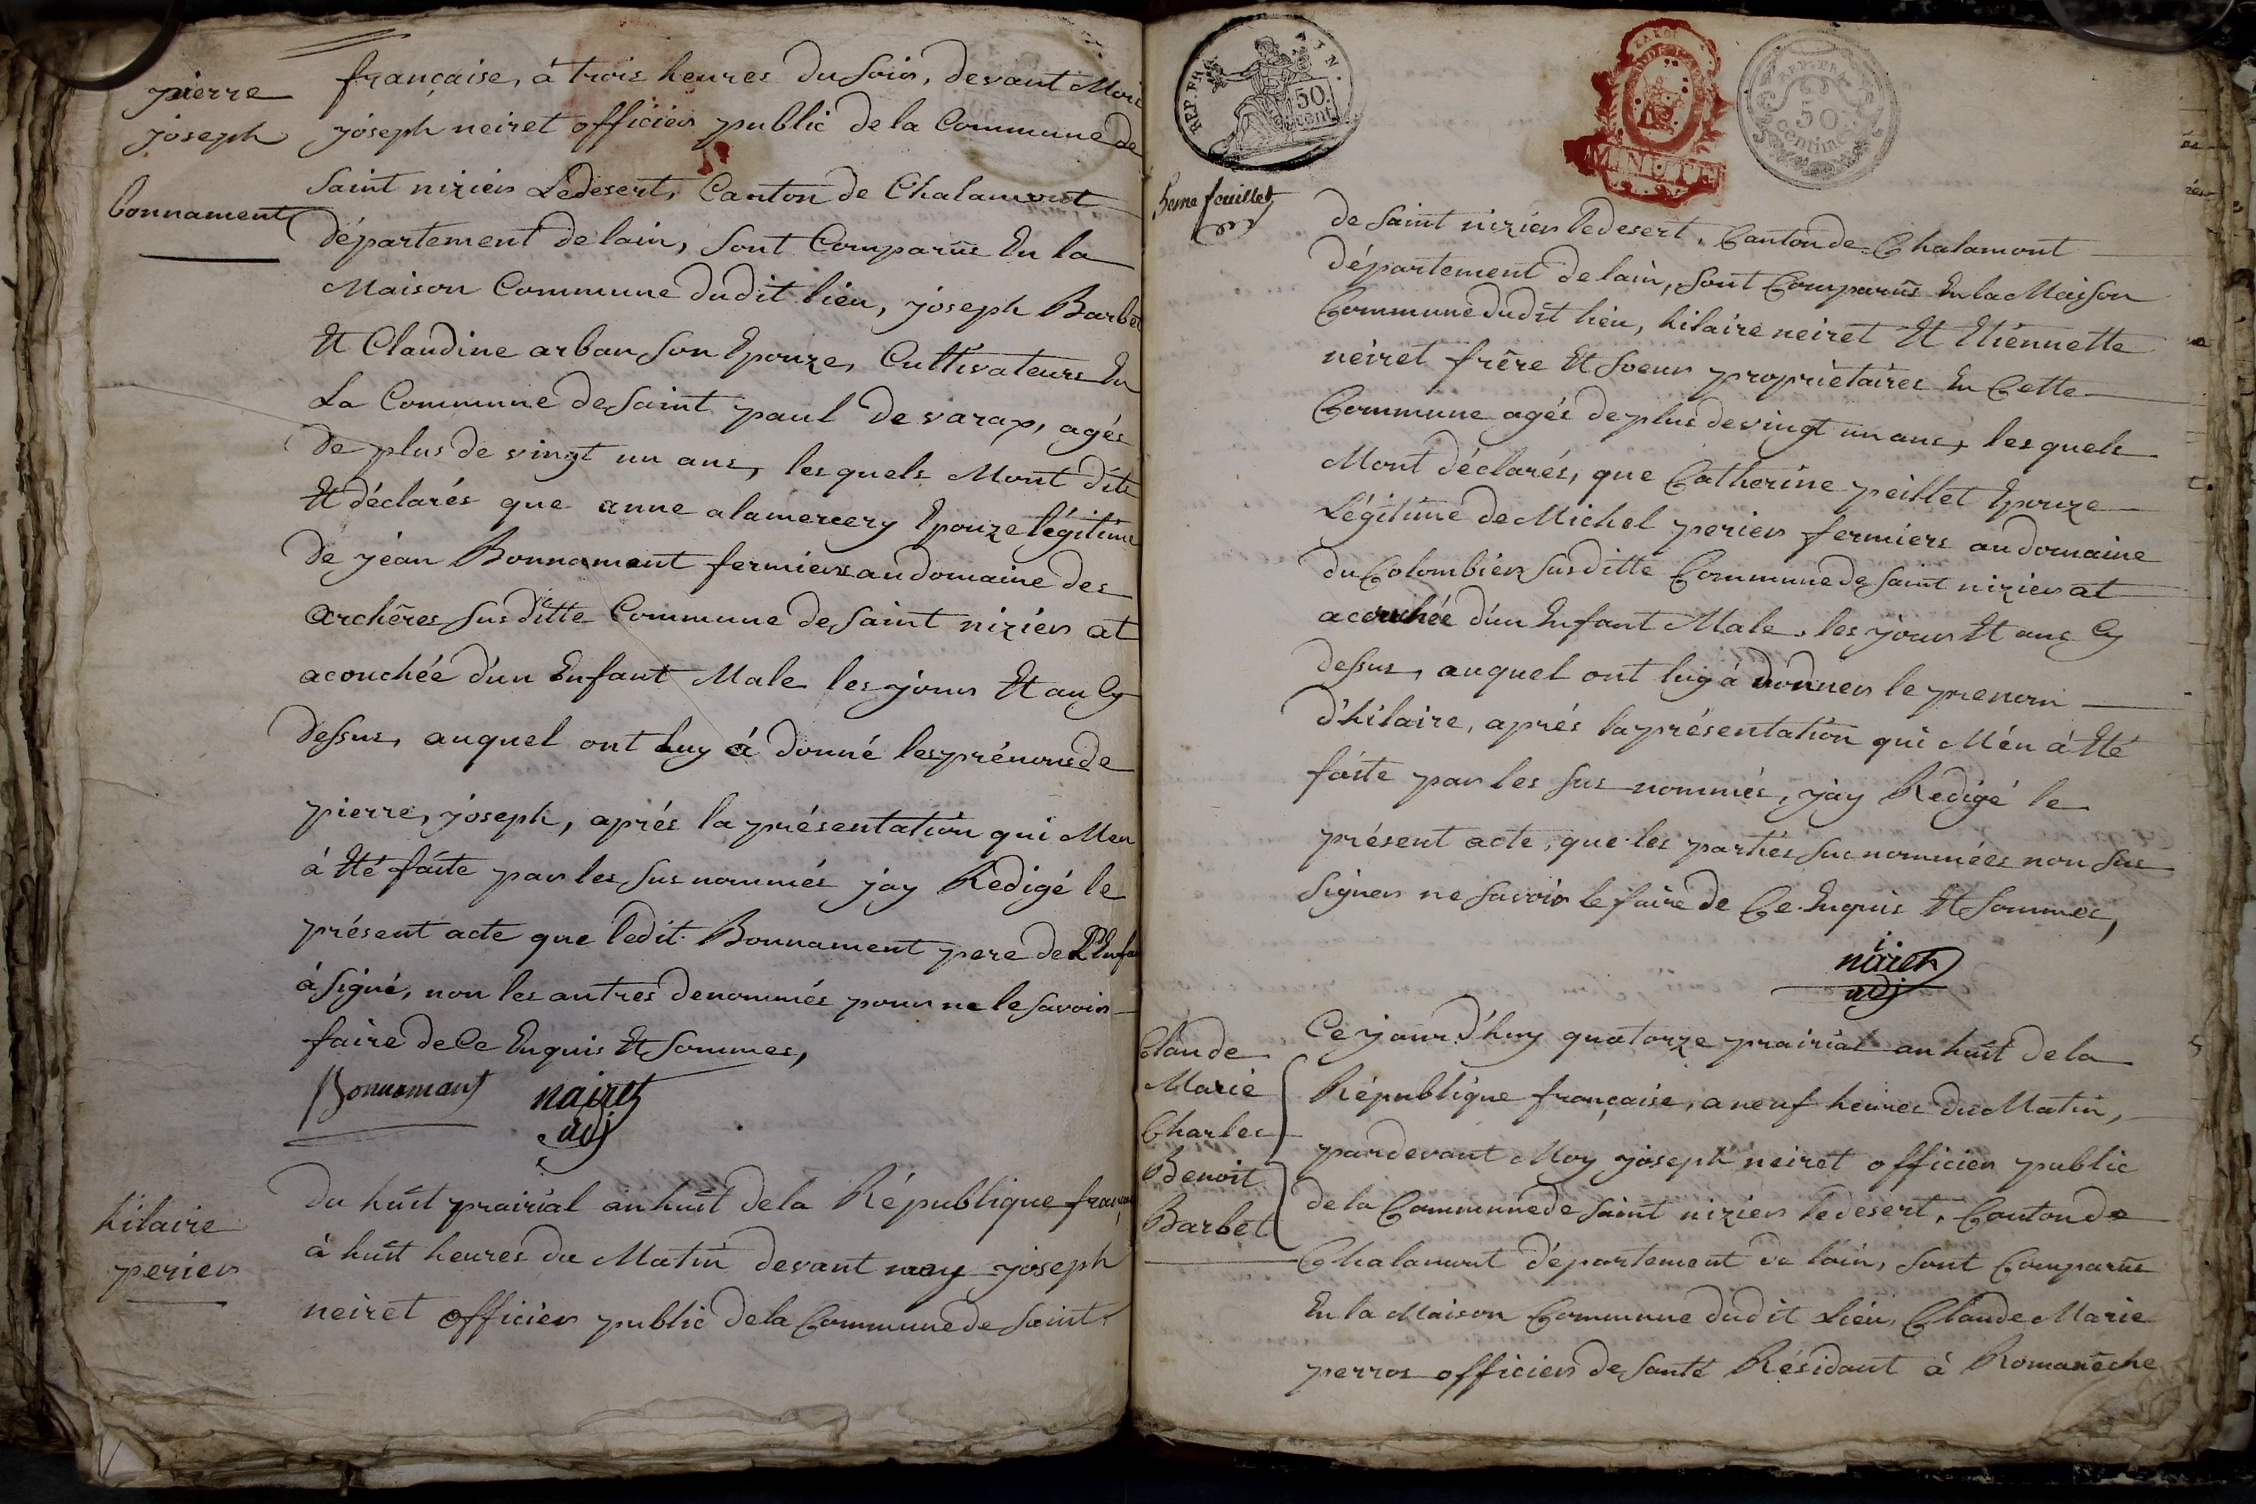 pierre
joseph
bonnament
française, à trois heures du soir, devant Moi
joseph neiret officier public de la Commune de
saint nizier Ledesert, Canton de Chalamont
département de lain, sont Comparûs En la
Maison Commune dudit lieu, joseph Barbet
Et Claudine arban son Epouze, Cultivateurs En
La Commune de saint paul de varax, agés
de plus de vingt un ans, lesquels Mont dits
Et déclarés que anne alamercery Epouze légitime
de jéan Bonnament fermiers au domaine des
archêres susditte Commune de saint nizier at
acouchée d'un Enfant Male les jour Et an Cy
dessus, auquel ont luy à donné les prénoms de
pierre, joseph, aprés la présentation qui Men
à Eté faite par les sus nommés jay Redigé le
présent acte que ledit Bonnament pere de L'Enfa
à signé, non les autres denommés pour ne le savoir
faire de Ce Enquis Et sommes,
Bonnamant nairet
adj
hilaire
perier
Du huit prairial an huit de la République française
à huit heures du Matin devant moy joseph
neiret officier public de la Commune de saint
REP. FRA. TIN.
50. cent
MINUTE
REP. FRA.
50
centimes
5eme feuillet
de saint nizier ledesert, Canton de Chalamont
département de lain, sont Comparûs En la Maison
Commune dudit lieu, hilaire neiret Et Etiennette
neiret frère Et soeur propriétaires En Cette
Commune agés de plus de vingt un ans, les quels
Mont déclarés, que Catherine peillet Epouze
Légitime de Michel perier fermiers au domaine
du Colombier susditte Commune de saint nizier at
acouchée d'un Enfant Male, les jour Et ans Cy
dessus, auquel ont luy à donner le prenom
d'hilaire, aprés la présentation qui M'én à Eté
faite par les sus nommés, jay Redigé le
présent acte, que les parties sus nommées non sus
signer ne savoir le faire de Ce Enquis Et sommes,
nairet
adj
Claude
Marie
Charles
Benoit
Barbet
Ce jourd'huy quatorze prairial an huit de la
République française, a neuf heures du Matin,
pardevant Moy joseph neiret officier public
de la Commune de saint nizier ledesert, Canton de
Chalamont département de lain, sont Comparûs
En la Maison Commune dudit Lieu, Claude Marie
perros officier de santé Résidant à Romanêche